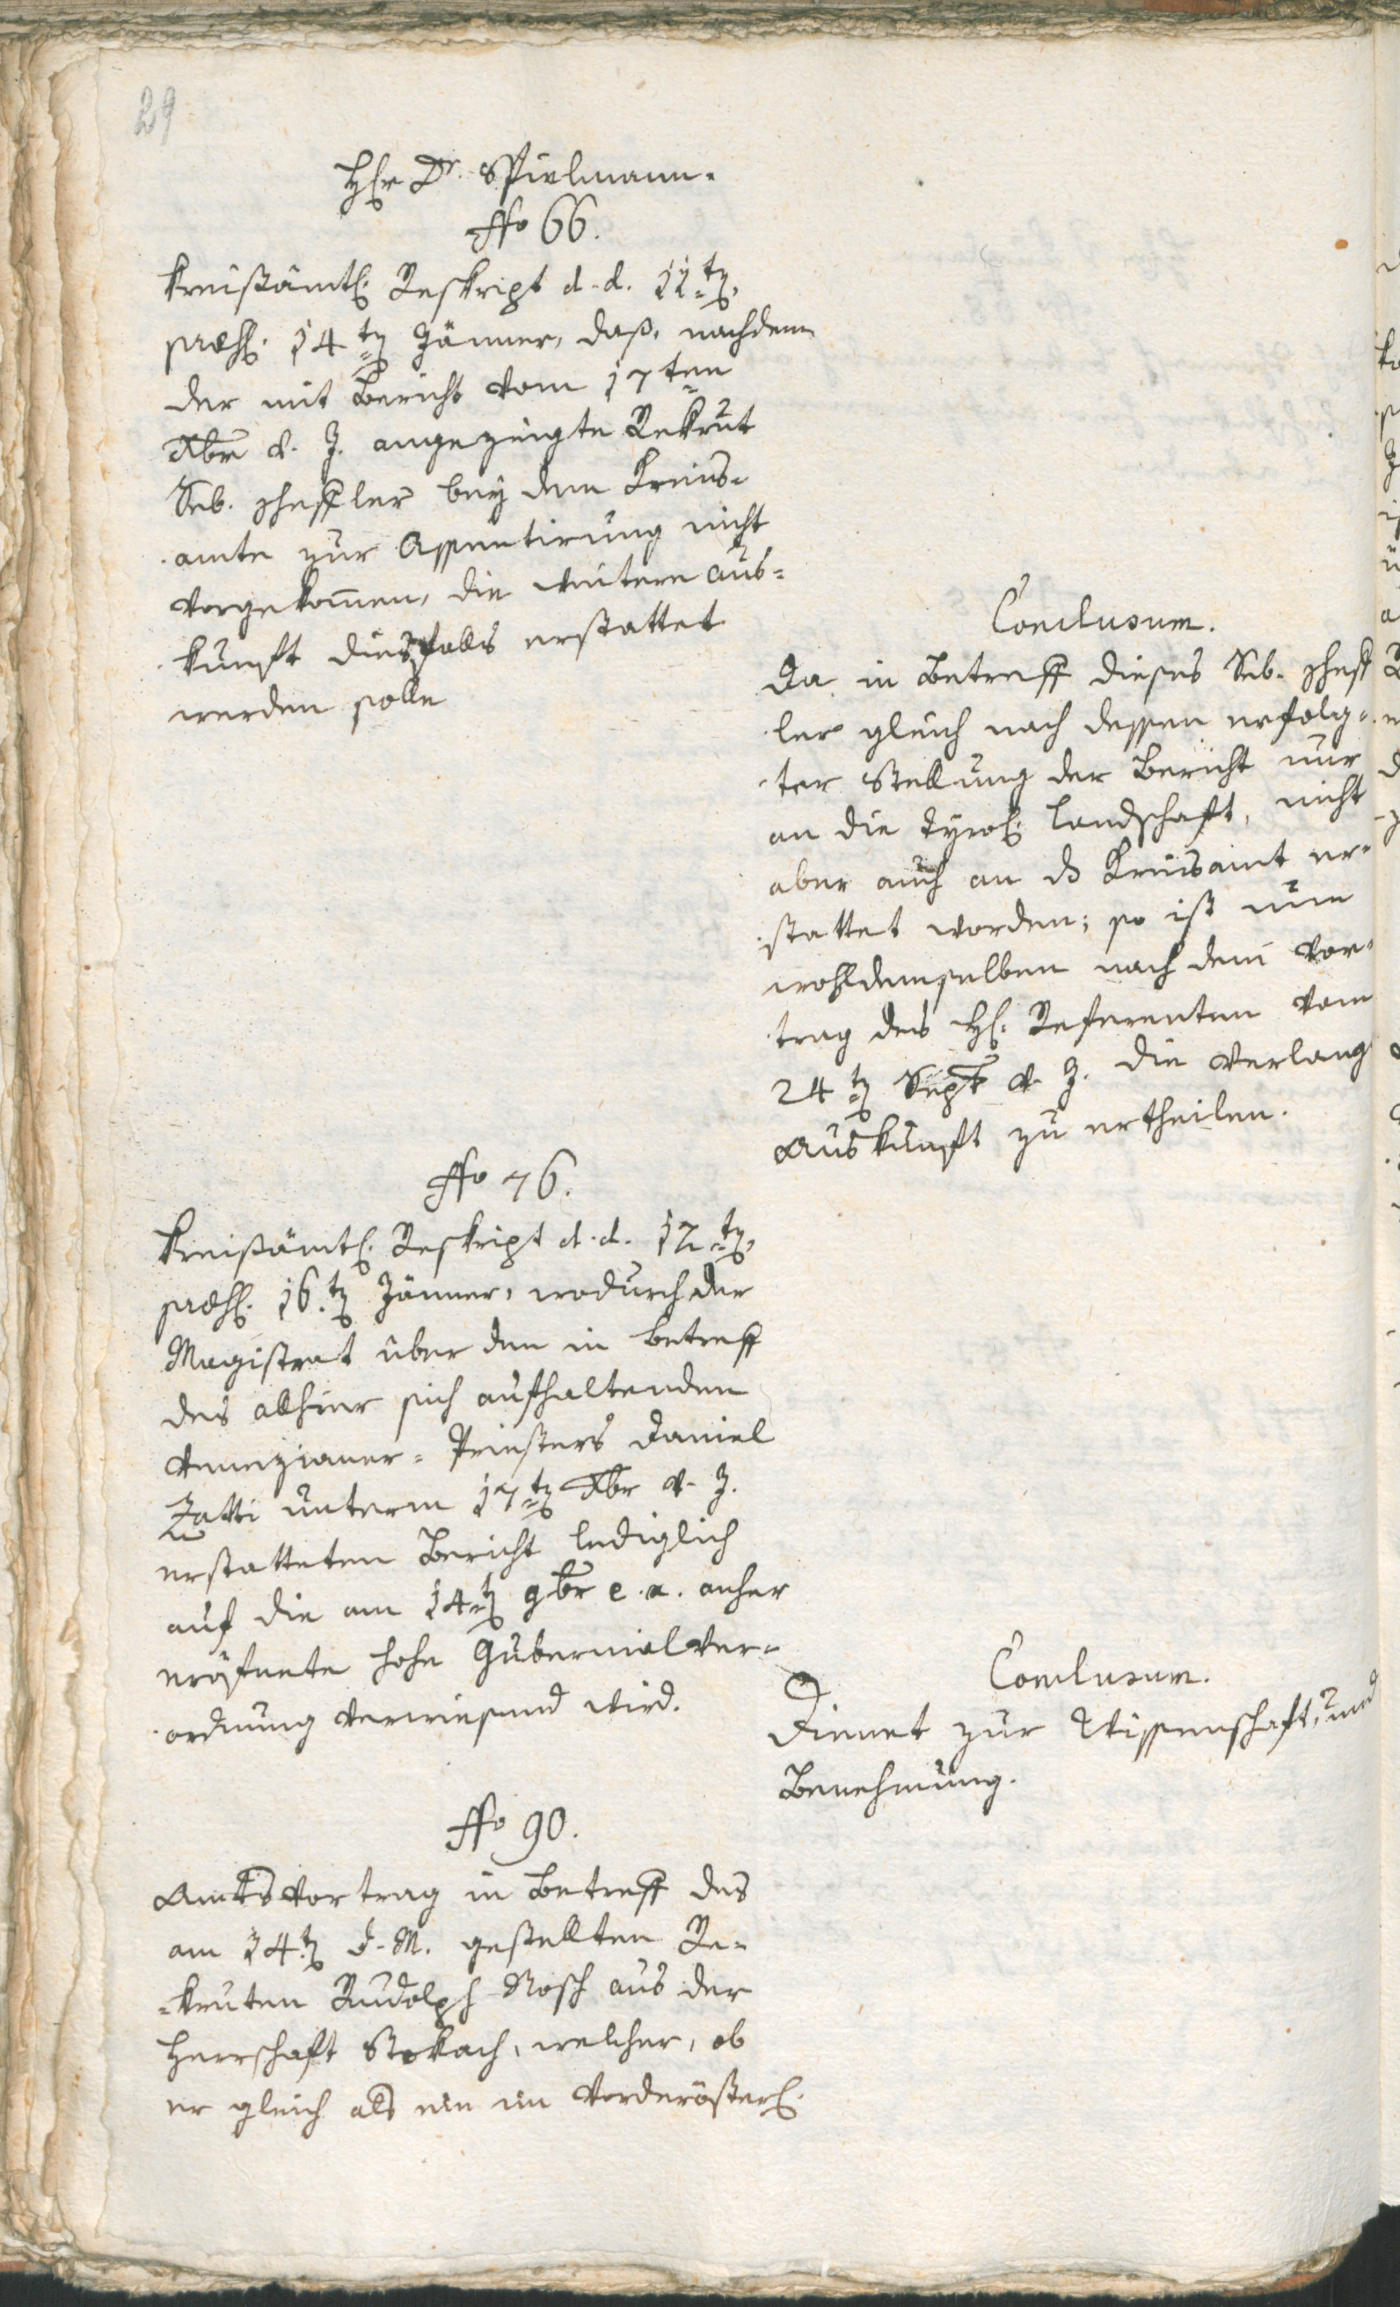 29
Hr Dr. Spielmann.
No 66.
Kreißämtl. Reskript d. d. 11ten,
præs. 14ten Jänner, daß, nachdem
der mit Bericht vom 17ten
Xbr v. J. angezeigte Rekrut
Seb. bey dem Kreis-
amte zur Assentirung nicht
vorgekommen, die weitere Aus-
kunft diesfalls erstattet
werden solle
Conclusum.
Da in Betreff dieses Seb.
ler gleich nach dessen erfolg-
ter Stellung der Bericht nur
an die Tyrol. Landschaft, nicht
aber auch an ds Kreisamt er-
stattet worden; so ist nun
wohldemselben nach dem Vor-
trag des H. Referenten vom
24ten Sept v. J. die verlang
Auskunft zu ertheilen.
No 76.
Kreißämtl. Reskript d. d. 12ten,
præs. 16ten Jänner, wodurch der
Magistrat über den in Betreff
des allhier sich aufhaltenden
Venezianer-Priesters Daniel
Zatti unterm 17ten Xbr v. J.
erstatteten Bericht lediglich
auf die am 14ten 9br e. a. anher
eröfnete hohe Gubernialver-
ordnung verwiesend wird.
Conclusum.
Dienet zur Wissenschaft, und
Benehmung.
No 90.
Amtsvortrag in Betreff des
am 14ten d. M. gestellten Re-
-kruten Rudolph Nosch aus der
Herrschaft Stokach, welcher, ob
er gleich als ein im Vorderösterl.